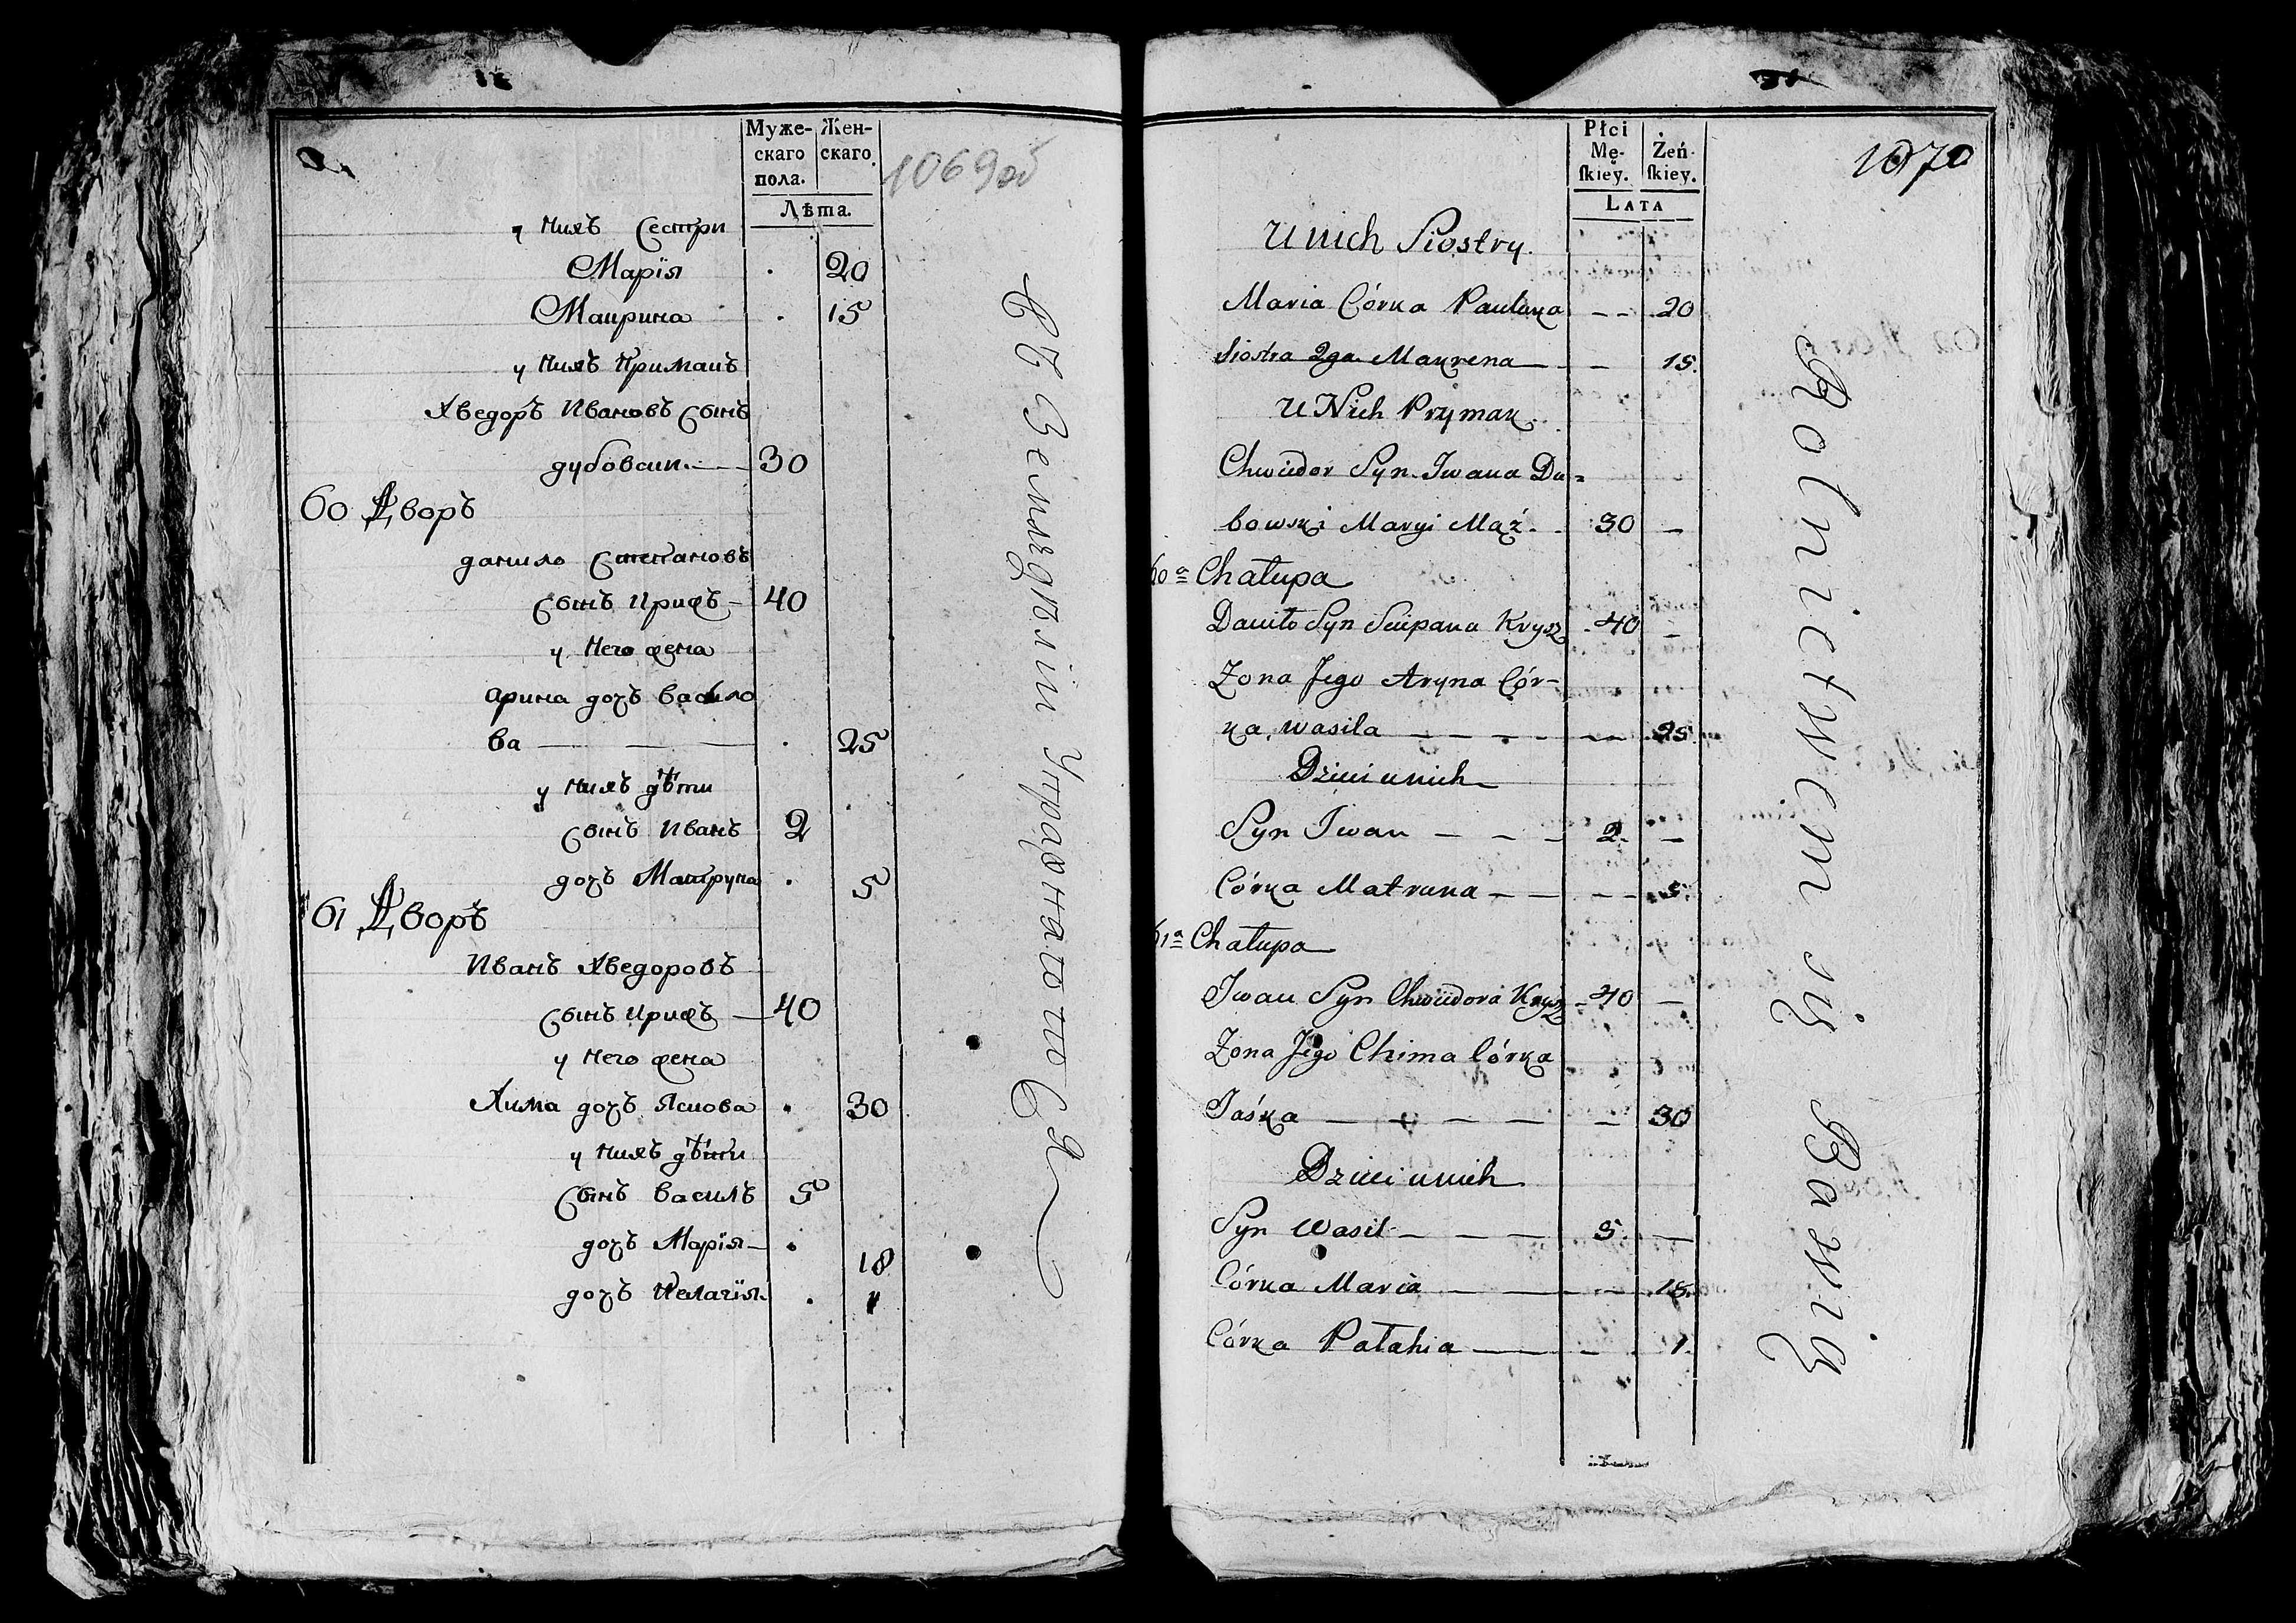 Муже-
скаго
пола.
Жен-
скаго
Лѣта.
1069об
у нихъ Сестри
Марїя 20
Маврина 15
у нихъ Примакъ
Хведоръ Ивановъ Сынъ
дубовски. 30
60 Дворъ
данило Степановъ
Сынъ Крижъ 40
у Него жена
арина дочь Василю
ва 25
у нихъ дѣти
Сынъ Иванъ 2
дочь Матруна 5
61 Дворъ
Иванъ Хведоровъ
Сынъ Крижъ 40
у него жена
Хима дочь Яскова 30
у нихъ дѣти
Сынъ Василь 5
дочь Марїя 18
дочь Пелагїя 1
Въ Земледѣлїи Упражнаются
Płci
Mę-
ſkiey.
Żeń-
ſkiey.
LATA
1070
U nich Siostry.
Maria Córka Pauluka 20
Siostra 2ga Maurena 15.
U Nich Prymak
Chwiedor Syn Iwana Du=
bowski Maryi Mąż 30
60a Chałupa
Daniło Syn Sciepana Krysz 40
Żona Jego Aryna Cór-
ka Wasila 25
Dzieci u nich
Syn Iwan 2.
Córka Matruna 5
61a Chałupa
Iwan Syn Chwiedora Krysz 40
Żona Jego Chima Córka
Jaśka 30
Dzieci u nich
Syn Wasil 5
Córka Maria 18.
Córka Pałahia 1.
Rolnictwem się Bawią